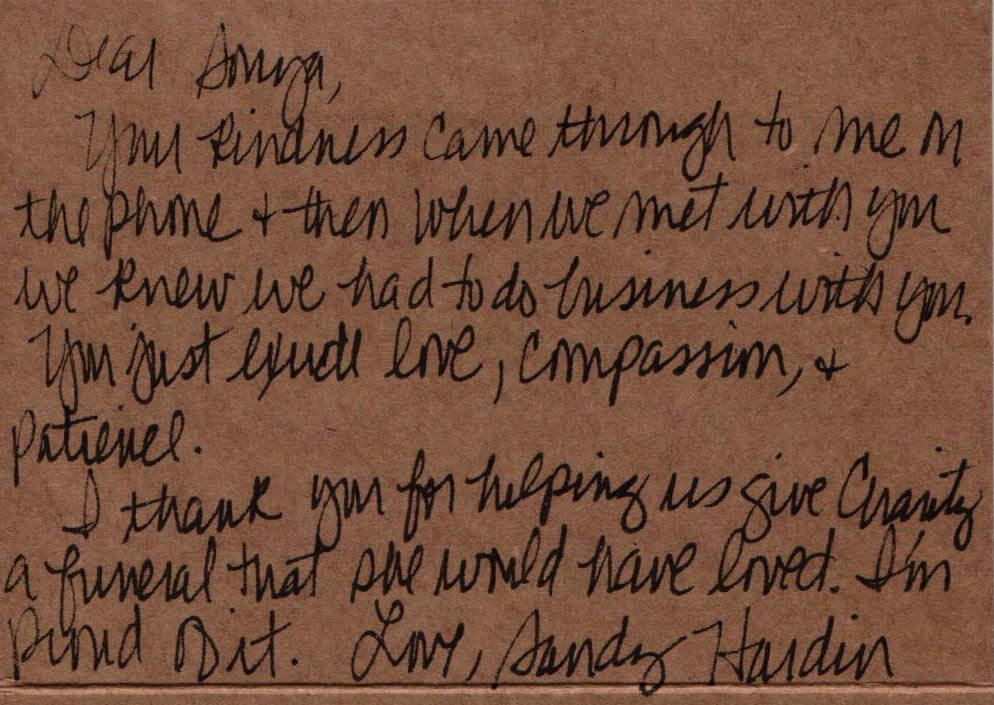 Dear Sonya,
Your kindness came through to me on
the phone & then when we met with you
we knew we had to do business with you.
You just exude love, compassion, &
patience.
I thank you for helping us give Charity
a funeral that she would have loved. I'm
proud of it. Love, Sandy Hardin